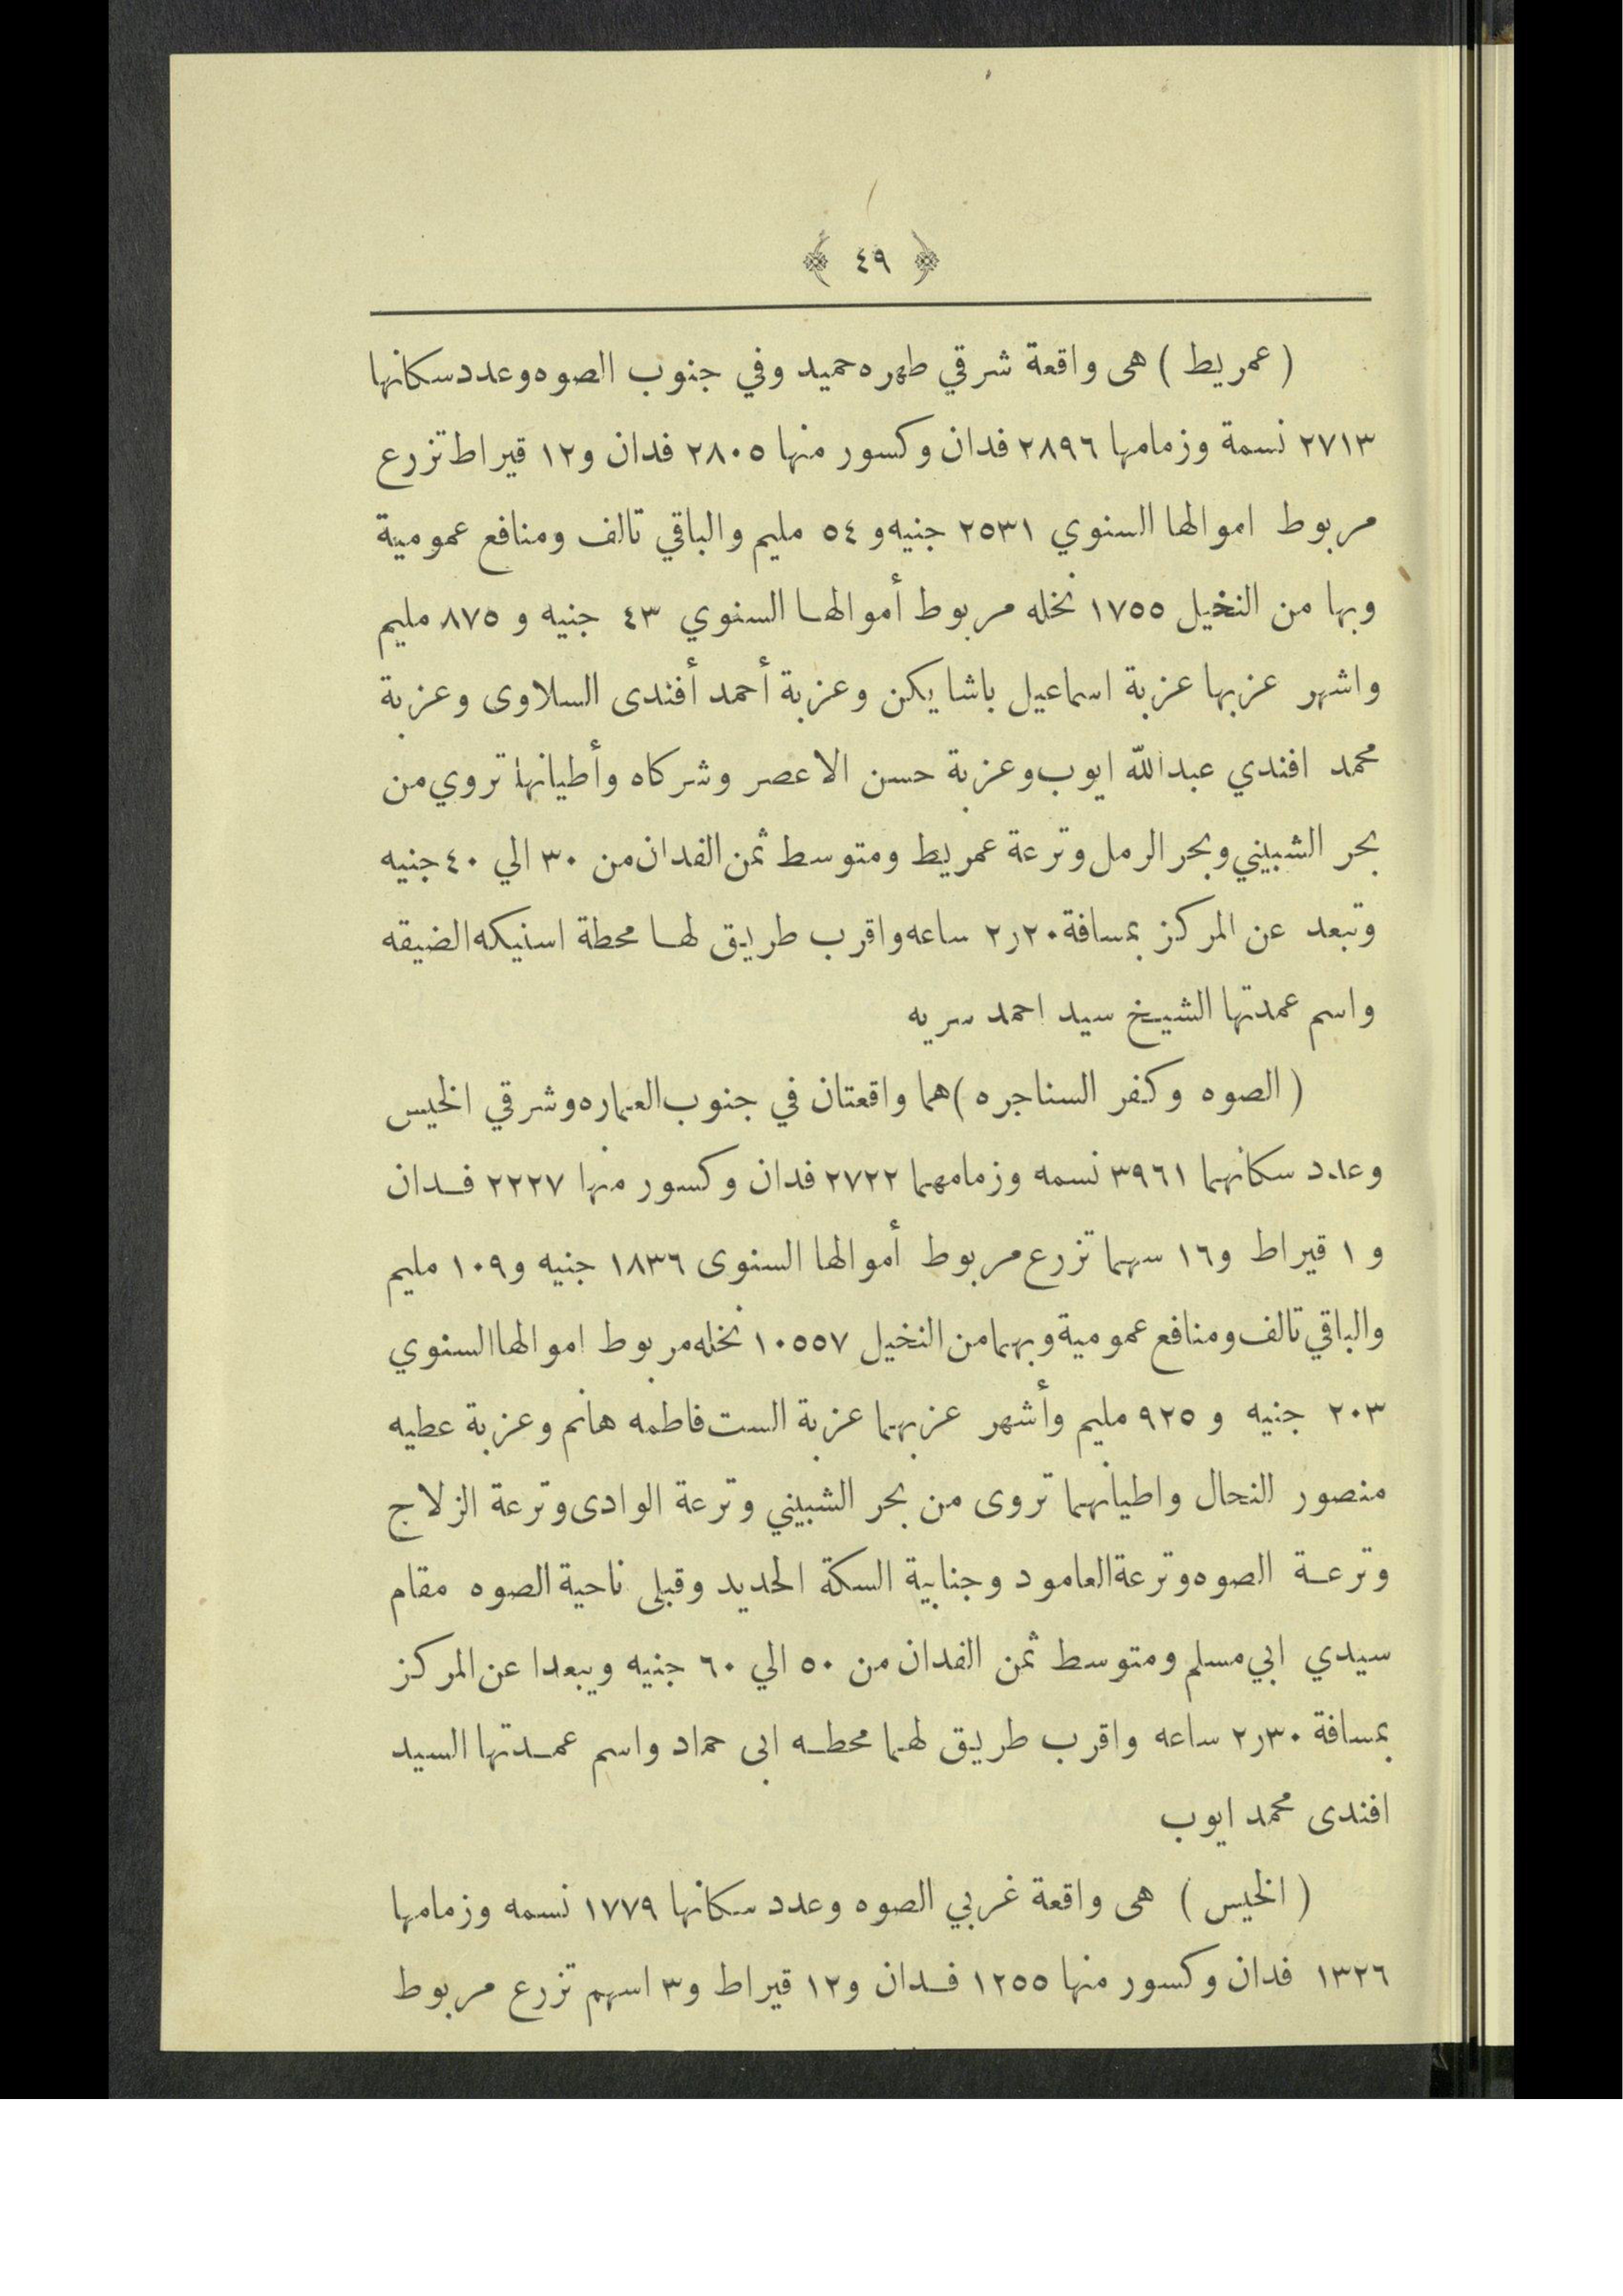 ﴿ ٤٩ ﴾
( عمريط ) هى واقعة شرقي طهره حميد وفي جنوب الصوه وعدد سكانها
٢٧١٣ نسمة وزمامها ٢٨٩٦ فدان وكسور منها ٢٨٠٥ فدان و١٢ قيراط تزرع
مربوط اموالها السنوي ٢٥٣١ جنيه و ٥٤ مليم والباقي تالف ومنافع عمومية
وبها من النخيل ١٧٥٥ نخله مربوط أموالها السنوي ٤٣ جنيه و ٨٧٥ مليم
واشهر عزبها عزبة اسماعيل باشا يكن وعزبة أحمد أفندى السلاوى وعزبة
محمد افندي عبد الله ايوب وعزبة حسن الاعصر وشركاه وأطيانها تروي من
بحر الشبيني وبحر الرمل وترعة عمريط ومتوسط ثمن الفدان من ٣٠ الي ٤٠ جنيه
وتبعد عن المركز بمسافة ٢٫٢٠ ساعه واقرب طريق لها محطة اسنيكه الضيقه
واسم عمدتها الشيخ سيد احمد سريه
( الصوه وكفر السناجره ) هما واقعتان في جنوب العماره وشرقي الخيس
وعدد سكانهما ٣٩٦١ نسمه وزمامهما ٢٧٢٢ فدان وكسور منها ٢٢٢٧ فدان
و ١ قيراط و١٦ سهما تزرع مربوط أموالها السنوى ١٨٣٦ جنيه و١٠٩ مليم
والباقي تالف ومنافع عمومية وبهما من النخيل ١٠٥٥٧ نخله مربوط اموالها السنوي
٢٠٣ جنيه و ٩٢٥ مليم وأشهر عزبهما عزبة الست فاطمه هانم وعزبة عطيه
منصور النحال واطيانهما تروى من بحر الشبيني وترعة الوادى وترعة الزلاج
وترعة الصوه وترعة العامود وجنابية السكة الحديد وقبلى ناحية الصوه مقام
سيدي ابي مسلم ومتوسط ثمن الفدان من ٥٠ الي ٦٠ جنيه ويبعدا عن المركز
بمسافة ٢٫٣٠ ساعه واقرب طريق لهما محطه ابى حماد واسم عمدتها السيد
افندى محمد ايوب
( الخيس ) هى واقعة غربي الصوه وعدد سكانها ١٧٧٩ نسمه وزمامها
١٣٢٦ فدان وكسور منها ١٢٥٥ فدان و١٢ قيراط و٣ اسهم تزرع مربوط